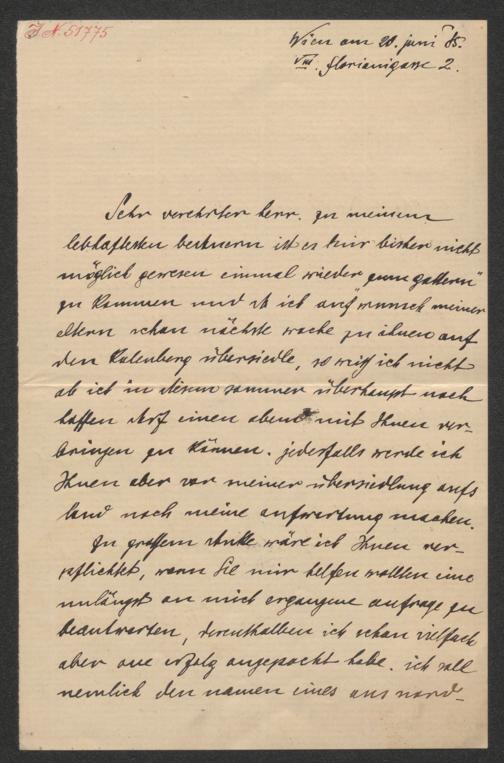 J.N. 51775
Wien am 20. juni 85.
VIII. florianigasse 2.
Sehr verehrter herr. zu meinem
lebhaftesten bedauern ist es mir bisher nicht
möglich gewesen einmal wieder „zum gattern“
zu kommen und da ich auf wunsch meiner
eltern schon nächste woche zu ihnen auf
den Kalenberg übersiedle, so weiß ich nicht
ob ich in diesem sommer überhaupt noch
hoffen darf einen abend mit Ihnen ver-
bringen zu können. jedesfalls werde ich
Ihnen aber vor meiner übersiedlung aufs
land noch meine aufwartung machen.
Zu großem danke wäre ich Ihnen ver-
pflichtet, wenn Sie mir helfen wollten eine
unlängst an mich ergangene anfrage zu
beantworten, derenthalben ich schon vielfach
aber one erfolg angepocht habe. ich soll
nemlich den namen eines aus nord-